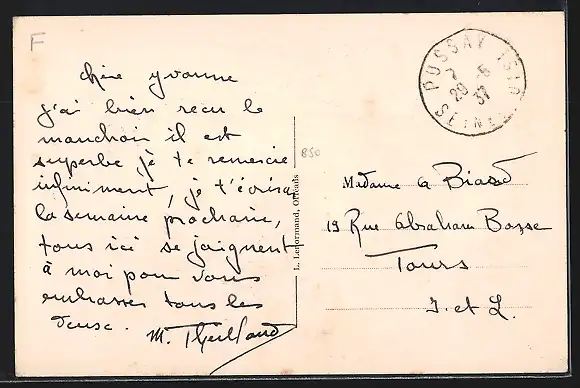 F
chère yvonne
j'ai bien recu le
manchon il est
superbe je te remercie
infiniment, je t'écrirai
la semaine prochaine,
tous ici se joignent
à moi pour vous
embrasser tous les
deux.
M.
850
L. Lenormand, Orléans
PUSSAY
29 -5
37
SEINE
Madame G Biard
19 Rue Abraham Bosse
Tours
I. et L.